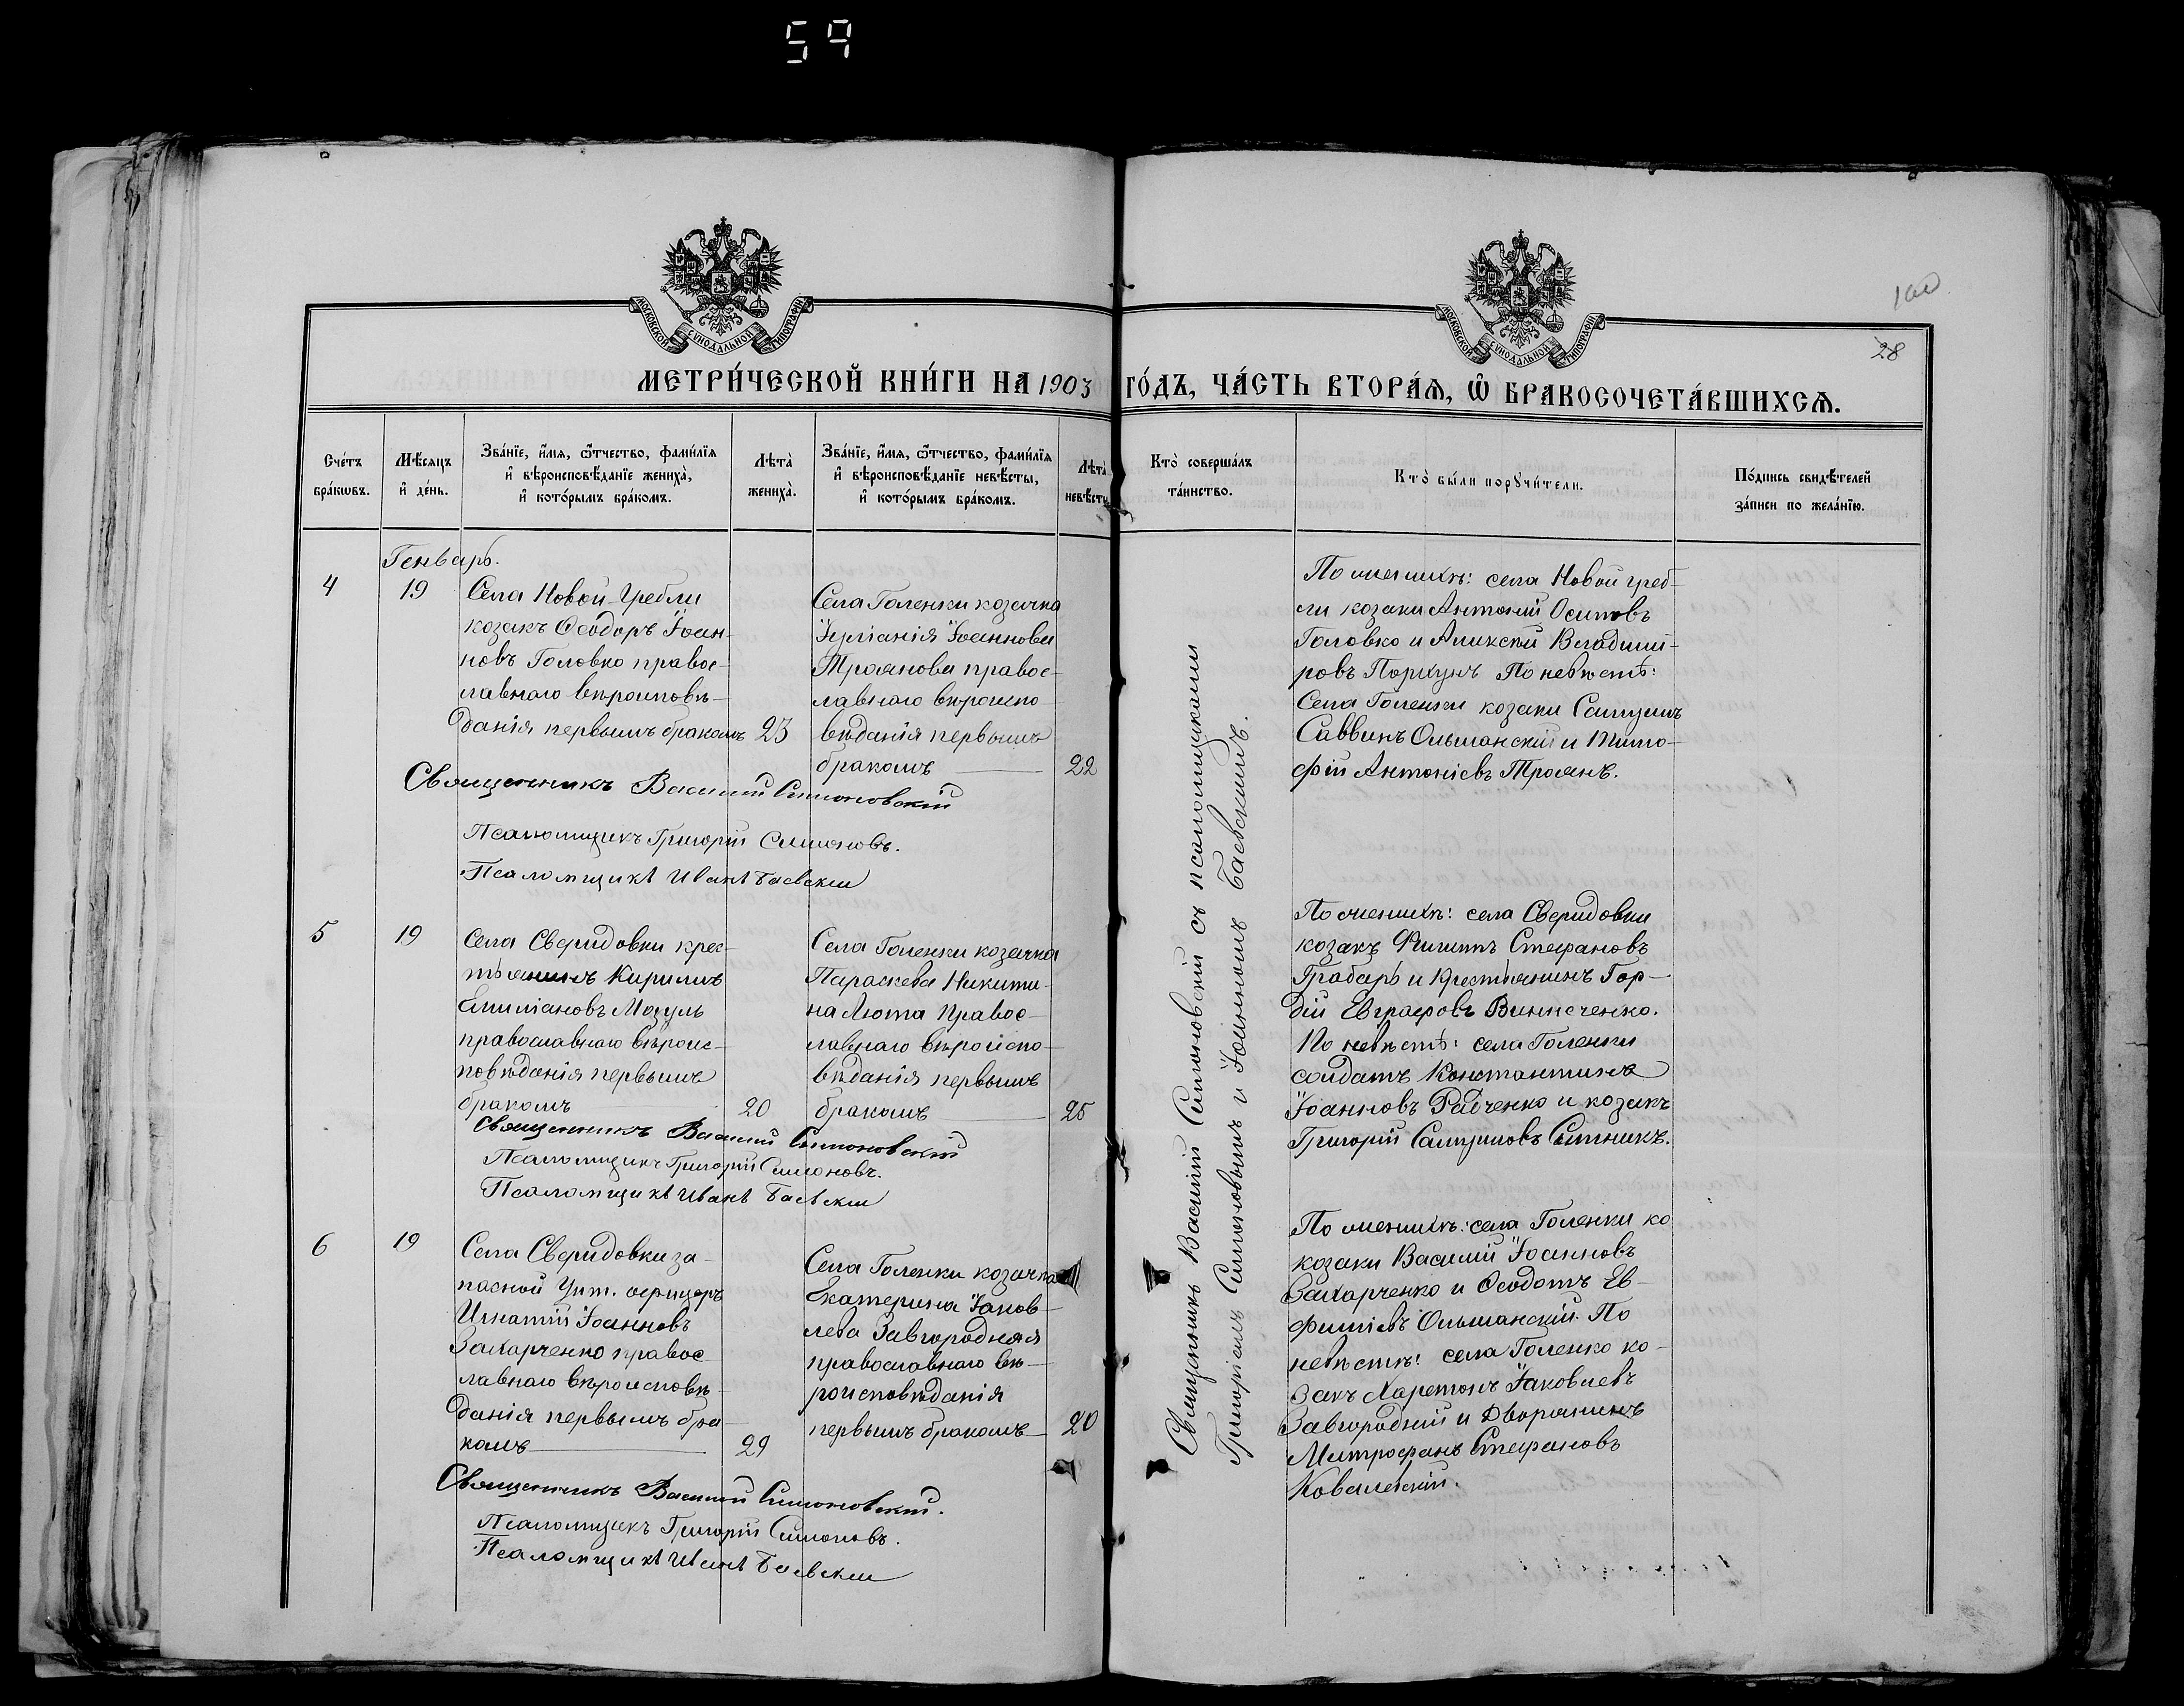 59
100
28
МОСКОВСКОЙ СѴНОДАЛЬНОЙ ТИПОГРАФІИ
МОСКОВСКОЙ СѴНОДАЛЬНОЙ ТИПОГРАФІИ
МЕТРИ́ЧЕСКОЙ КНИ́ГИ НА 1903 ГО́ДЪ, ЧА́СТЬ ВТОРА́Ѧ, Ѽ БРАКОСОЧЕТА́ВШИХСѦ.
Сче́тъ
бра́кѡвъ.
Мѣ́сяцъ
и҆ де́нь.
Зва́нїе, и҆́мѧ, ѻ҆́тчество, фами́лїѧ
и҆ вѣроисповѣ́данїе жениха̀,
и҆ кото́рымъ бра́комъ.
Лѣта̀
жениха̀.
Зва́нїе, и҆́мѧ, ѻ҆́тчество, фами́лїѧ
и҆ вѣроисповѣ́данїе невѣ́сты,
и҆ кото́рымъ бра́комъ.
Лѣта̀
невѣ́сты
Кто̀ соверша́лъ
та́инство.
Кто̀ бы́ли порꙋчи́тели.
По́дпись свидѣ́телей
за́писи по жела́нїю.
Генварь.
4
19
Села Новой-Гребли
козакъ Ѳеодоръ Іоан-
новъ Головко правос-
лавнаго вѣроисповѣ-
данія первымъ бракомъ
23
Села Голенки козачка
Іуліанія Іоаннова
Троянова правос-
лавнаго вѣроиспо
вѣданія первымъ
бракомъ
22
По женихѣ: села Новой греб-
ли козаки Антоній Осиповъ
Головко и Алексѣй Владими-
ровъ По невѣстѣ:
Села Голенки козаки Самуилъ
Саввинъ Ольшанскій и Тимо-
фій Антоніевъ Троянъ.
Священникъ Василій Симоновскій
Псаломщикъ Григорій Симоновъ.
Псаломщикъ Иванъ Баевскій
5
19
Села Свридовки крес-
тьянинъ Кирилъ
Емиліановъ Мозуль
православнаго вѣроис-
повѣданія первымъ
бракомъ
20
Села Голенки козачка
Параскева Никити-
на Люта правос-
лавнаго вѣроиспо-
вѣданія первымъ
бракомъ
25
По женихѣ: села Свридовки
козакъ Филиппъ Стефановъ
Грабарь и крестьянинъ Гор-
дій Евграфовъ Винниченко.
По невѣстѣ: села Голенки
солдатъ Константинъ
Іоанновъ Радченко и козакъ
Григорій Самуиловъ Ситникъ.
Священникъ Василій Симоновскій
Псаломщикъ Григорій Симоновъ.
Псаломщикъ Иванъ Баевскій
6
19
Села Свридовки за-
пасной Унт. офицеръ
Игнатій Іоанновъ
Захарченко правос-
лавнаго вѣроисповѣ-
данія первымъ бра-
комъ
29
Села Голенки козачка
Екатерина Іаков-
лева Завгородняя
православнаго вѣ-
роисповѣданія
первымъ бракомъ
20
По женихѣ: села Голенки ко
козаки Василій Іоанновъ
Захарченко и Ѳеодотъ Ев-
фиміевъ Ольшанскій. По
невѣстѣ: села Голенко ко-
закъ Харетонъ Іаковлевъ
Завгородній и Дворянинъ
Митрофанъ Стефановъ
Ковалевскій.
Священникъ Василій Симоновскій.
Псаломщикъ Григорій Симоновъ.
Псаломщикъ Иванъ Баевскій
Священникъ Василій Симоновскій съ псаломщиками
Григоріемъ Симоновымъ и Іоанномъ Баевскимъ.